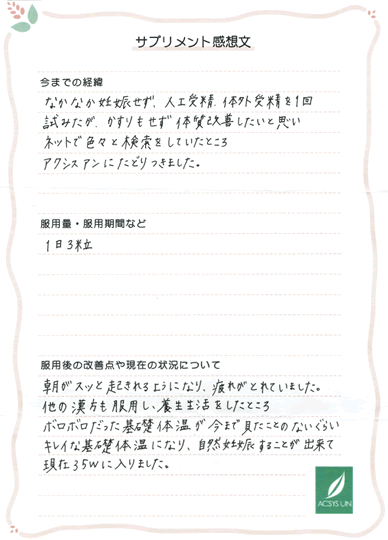 サプリメント感想文
今までの経緯
なかなか妊娠せず、人工受精、体外受精を1回
試みたが、かすりもせず体質改善したいと思い
ネットで色々と検索をしていたところ
アクシスアンにたどりつきました。
服用量・服用期間など
1日3粒
服用後の改善点や現在の状況について
朝がスッと起きれるようになり、疲れがとれていました。
他の漢方も服用し、養生生活をしたところ
ボロボロだった基礎体温が今まで見たことのないぐらい
キレイな基礎体温になり、自然妊娠することが出来て
現在35wに入りました。
ACSYS UN